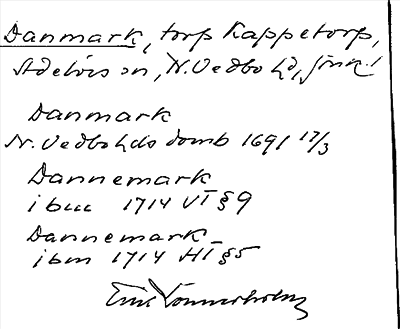 Danmark, torp Kappetorp,
Adelövs sn, N. Vedbo hd, Jönk. l
Danmark
N. Vedbo hds domb 1691 17/3
Dannemark
ibm 1714 VT § 9
Dannemark
ibm 1714 HT § 5